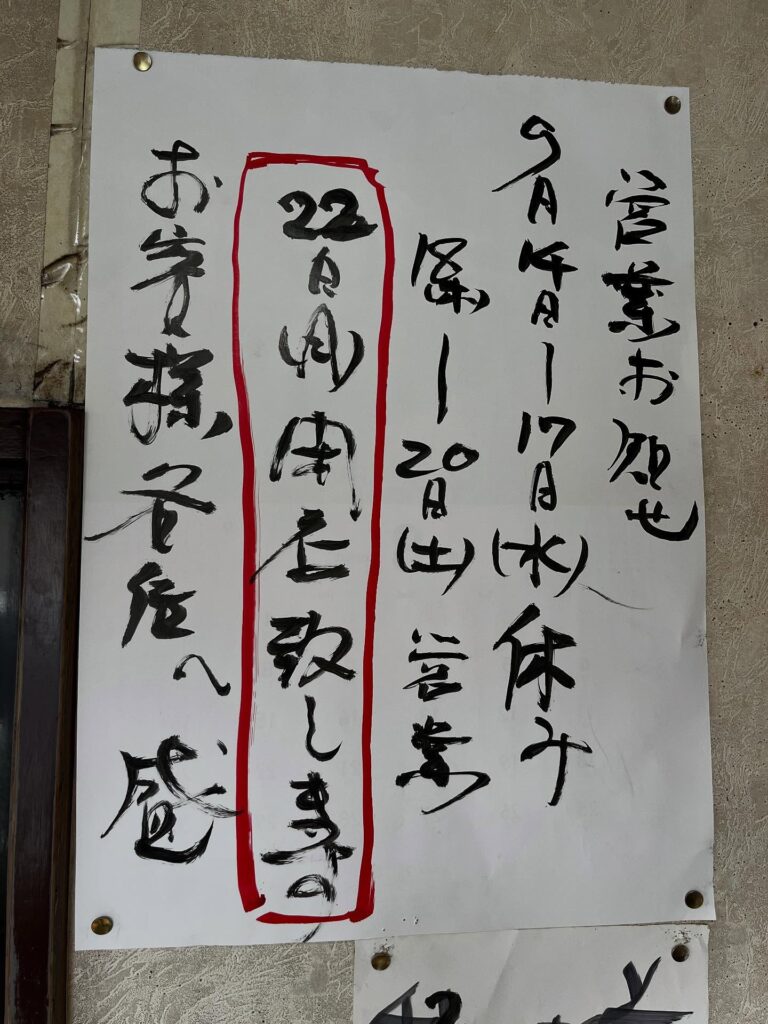 営業お知せ
9月14日ー17日(水)休み
18木ー20日(土)営業
22日(月)閉店致します。
お客様各位へ 盛